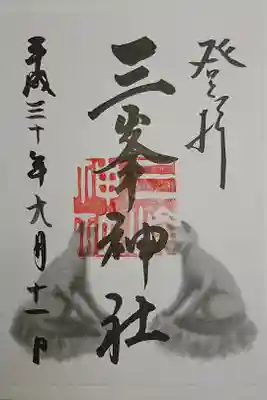 登拝
三峯神社
平成三十年九月十一日